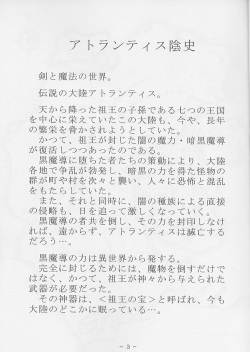 アトランティス陰史
剣と魔法の世界。
伝説の大陸アトランティス。
天から降った祖王の子孫である七つの王国
を中心に栄えていたこの大陸も、今や、長年
の繁栄を脅かされようとしていた。
かつて、祖王が封じた闇の魔力・暗黒魔導
が復活しつつあったのである。
黒魔導に堕ちた者たちの策動により、大陸
各地で争乱が勃発し、暗黒の力を得た怪物の
群が町や村を次々と襲い、人々に恐怖と混乱
をもたらしていた。
また、それと同時に、闇の種族による直接
の侵略も、日を追って激しくなっていく。
黒魔導の者共を倒し、その力を封印しなけ
れば、遠からず、アトランティスは滅亡する
だろう…。
黒魔導の力は異世界から発する。
完全に封じるためには、魔物を倒すだけで
はなく、かつて、祖王が神々から与えられた
武器が必要だった。
その神器は、＜祖王の宝＞と呼ばれ、今も
大陸のどこかに眠っている…。
－3－